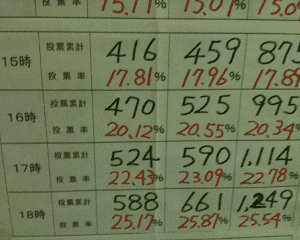 15時 投票累計 416 459 875
投票率 17.81% 17.96% 17.89
16時 投票累計 470 525 995
投票率 20.12% 20.55% 20.34%
17時 投票累計 524 590 1,114
投票率 22.43% 23.09% 22.78%
18時 投票累計 588 661 1,249
投票率 25.17% 25.87% 25.54%